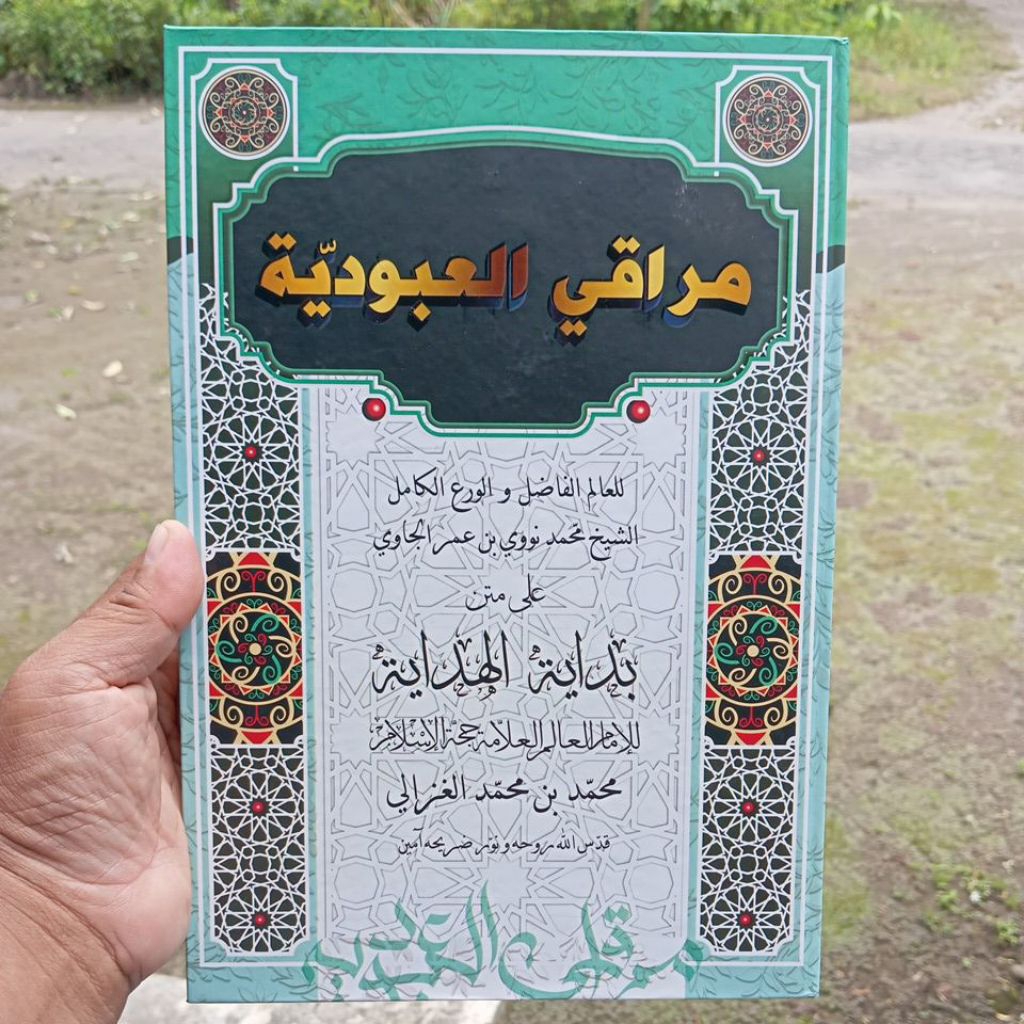 مراقي العبوديّة
للعالم الفاضل و الورع الكامل
الشيخ محمد نووي بن عمر الجاوي
على متن
بداية الهداية
للإمام العالم العلامة حجّة الإسلام
محمّد بن محمّد الغزالي
قدّس الله روحه و نوّر ضريحه آمين
مراقي العبودية